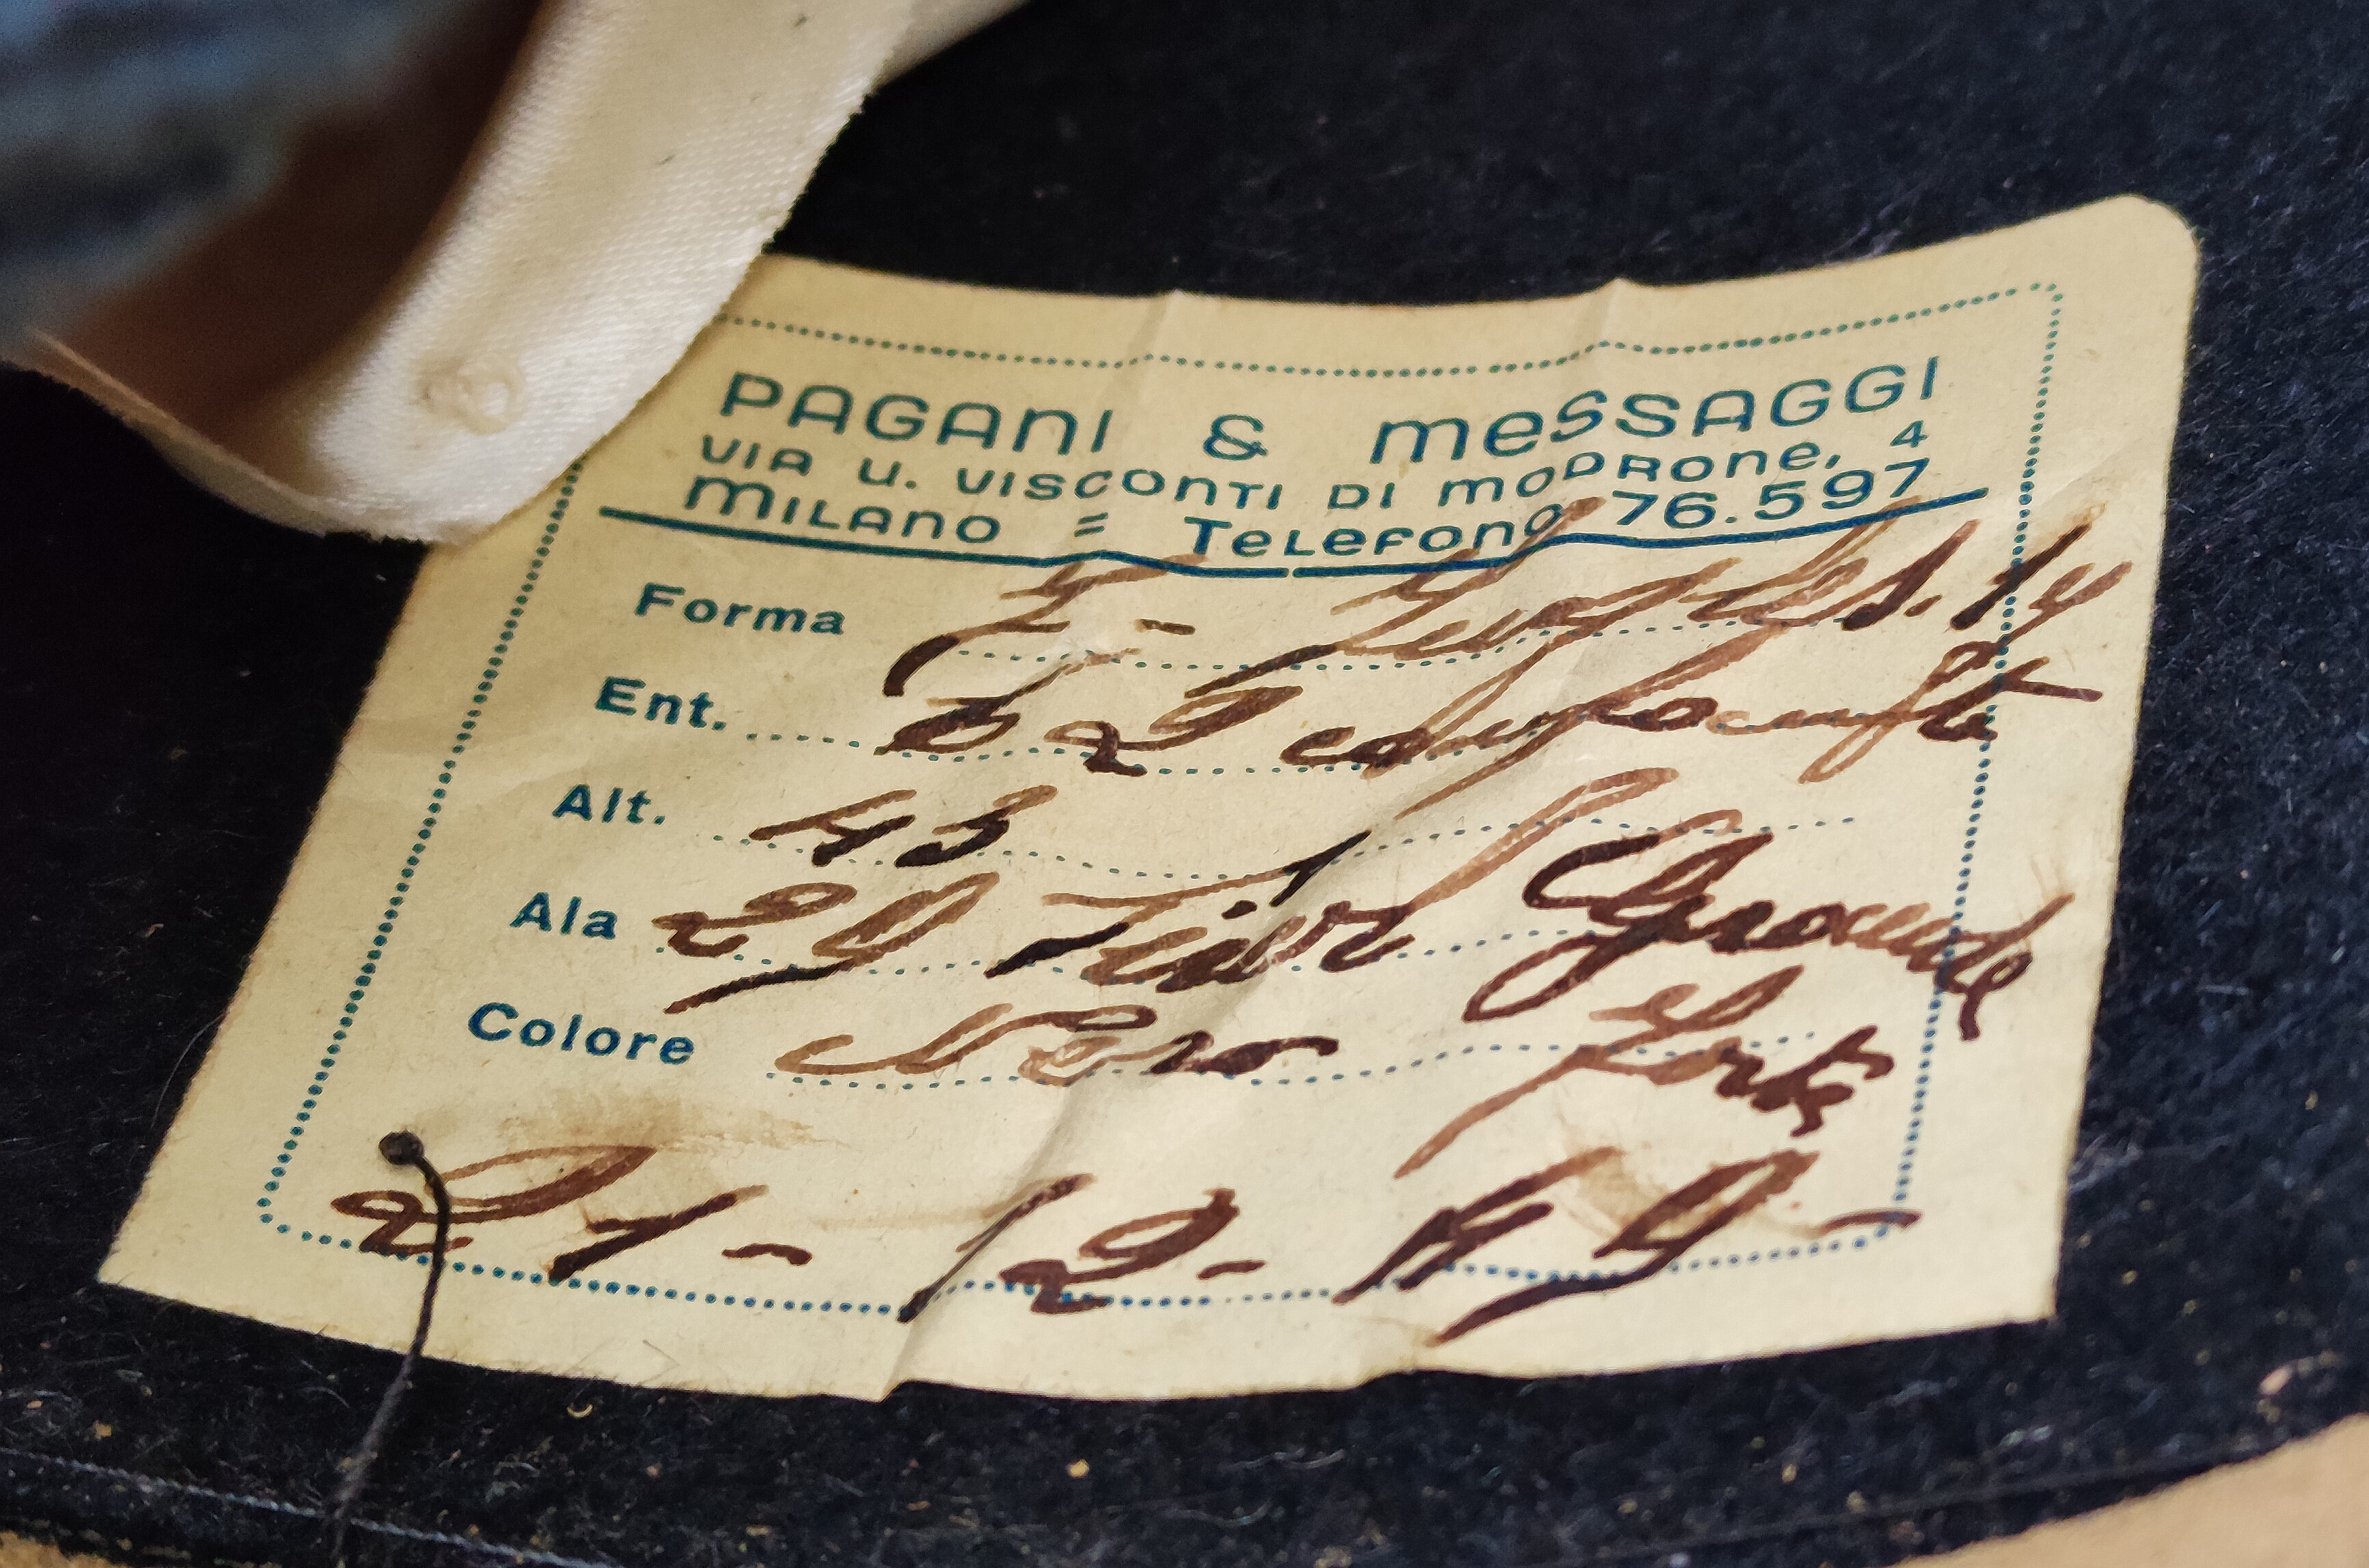 PAGANI & MESSAGGI
VIA U. VISCONTI DI MODRONE, 4
MILANO = TELEFONO 76.597
Forma
Ent.
Alt. 43
Ala Grande
Colore Nero Forte
21-12-49-